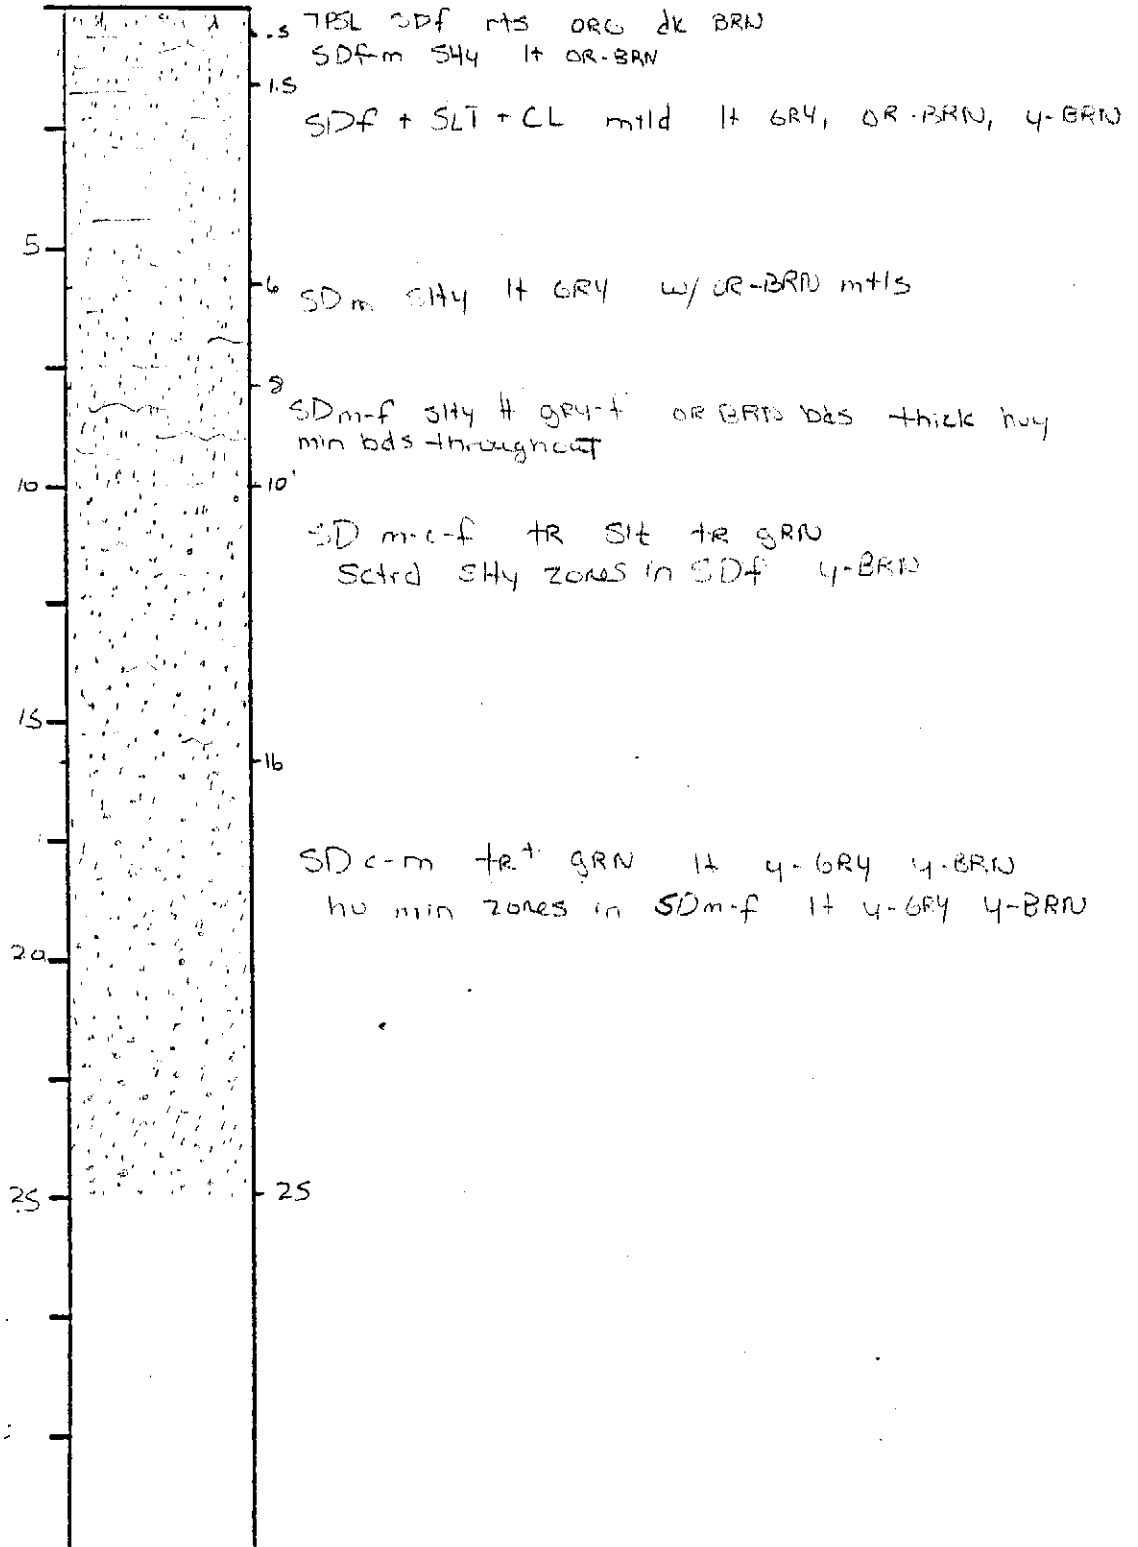 .5 TPSL SDf rts ORG dk BRN
SDf-m Slty lt OR-BRN
1.5
SDf + SLT + CL mtld lt GRY, OR-BRN, Y-BRN
5
6 SDm Slty lt GRY w/ OR-BRN mtls
8
SDm-f slty lt gRY-t OR BRN bds thick hvy
min bds throughout
10 10'
SD m-c-f tR Slt tR gRN
Sctrd Slty zones in SDf Y-BRN
15
16
SD c-m tR+ gRN lt Y-GRY Y-BRN
hv min zones in SDm-f lt Y-GRY Y-BRN
20
25 25